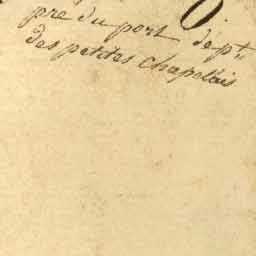 pré du port dep.t
des petites chapelais